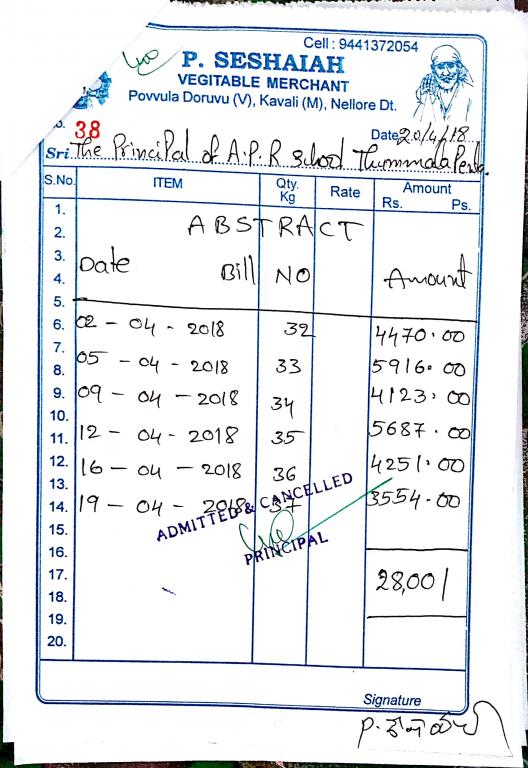 Cell : 9441372054
P. SESHAIAH
VEGITABLE MERCHANT
Povvula Doruvu (V), Kavali (M), Nellore Dt.
38
Date 20/4/18
Sri The Principal of A.P.R School Thummala Penta.
S.No. ITEM Qty. Kg Rate Amount Rs. Ps.
1.
2. ABSTRACT
3.
4. Date Bill NO Amount
5.
6. 02 - 04 - 2018 32 4470.00
7.
8. 05 - 04 - 2018 33 5916.00
9. 09 - 04 - 2018 34 4123.00
10.
11. 12 - 04 - 2018 35 5687.00
12.
13. 16 - 04 - 2018 36 4251.00
14. 19 - 04 - 2018 37 3554.00
ADMITTED & CANCELLED
PRINCIPAL
15.
16.
17. 28,001
18.
19.
20.
Signature